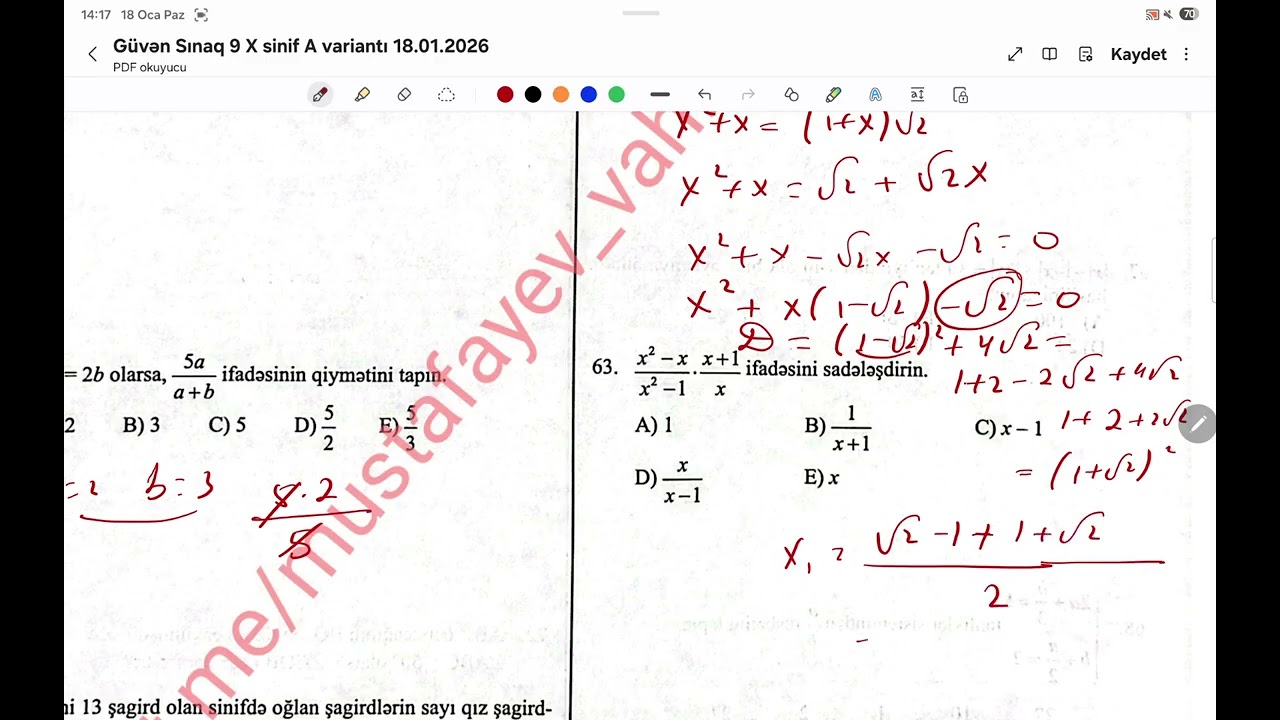 14:17 18 Oca Paz
70
Güvən Sınaq 9 X sinif A variantı 18.01.2026
PDF okuyucu
Kaydet
= 2b olarsa, 5a/(a+b) ifadəsinin qiymətini tapın.
2 B) 3 C) 5 D) 5/2 E) 5/3
=2 b=3 5·2/5
ni 13 şagird olan sinifdə oğlan şagirdlərin sayı qız şagird-
me/mustafayev_vah
x²+x = (1+x)√2
x²+x = √2 + √2x
x²+x-√2x-√2=0
x²+x(1-√2)-√2=0
D = (1-√2)²+4√2=
63. (x²-x)/(x²-1) · (x+1)/x ifadəsini sadələşdirin.
1+2-2√2+4√2
A) 1 B) 1/(x+1) C) x-1
1+2+2√2
D) x/(x-1) E) x
=(1+√2)²
x₁ = (√2-1+1+√2)/2
=